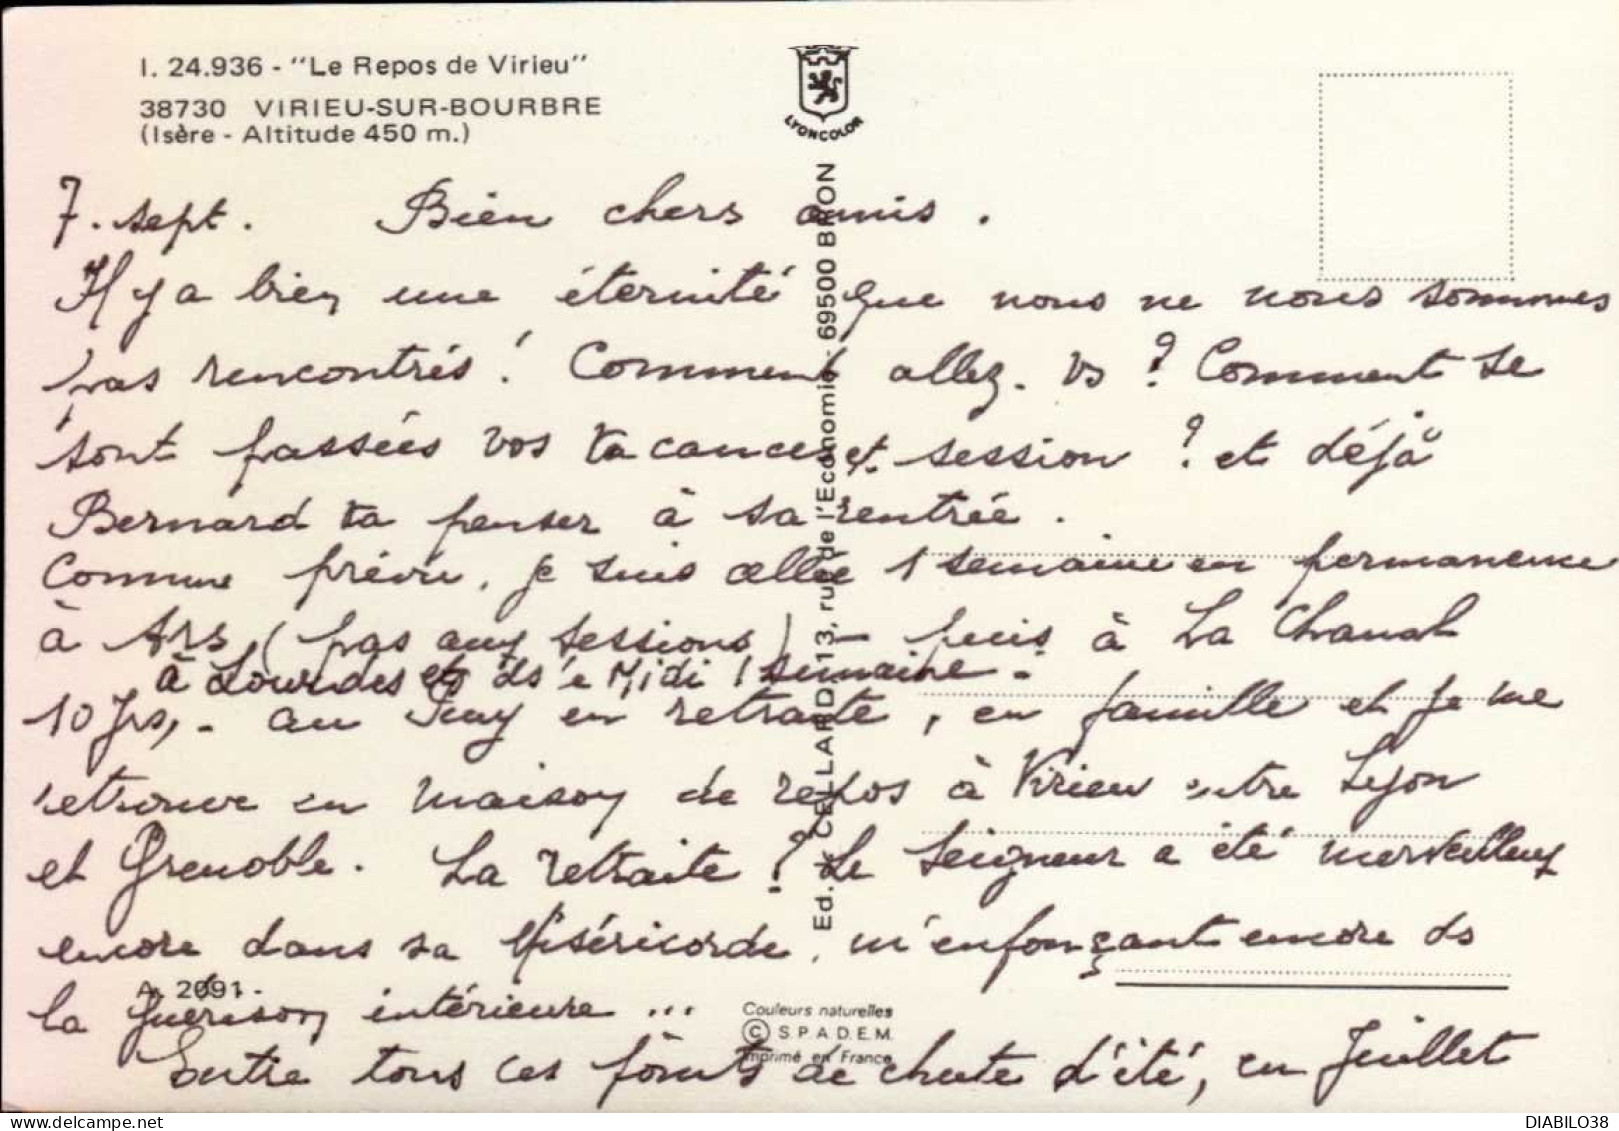 I. 24.936 - "Le Repos de Virieu"
38730 VIRIEU-SUR-BOURBRE
(Isère - Altitude 450 m.)
LYONCOLOR
7. sept. Bien chers amis.
Il y a bien une éternité que nous ne nous sommes
pas rencontrés ! Comment allez-vs ? Comment se
sont passées vos vacances et session ? et déjà
Bernard va penser à sa rentrée.
Comme prévu, je suis allée 1 semaine en permanence
à Ars, (pas aux sessions) - puis à La Chanal
à Lourdes et ds le Midi 1 semaine -
10 jrs, - au Puy en retraite, en famille et je me
retrouve en maison de repos à Virieu entre Lyon
et Grenoble. La retraite ? Le Seigneur a été merveilleux
encore dans sa Miséricorde, m'enfonçant encore ds
la guérison intérieure ...
Entre tous ces points de chute d'été, en Juillet
Ed. CELLARD 13, rue de l'Economie - 69500 BRON
A. 2091 -
Couleurs naturelles
© S.P.A.D.E.M.
Imprimé en France
DIABILO38